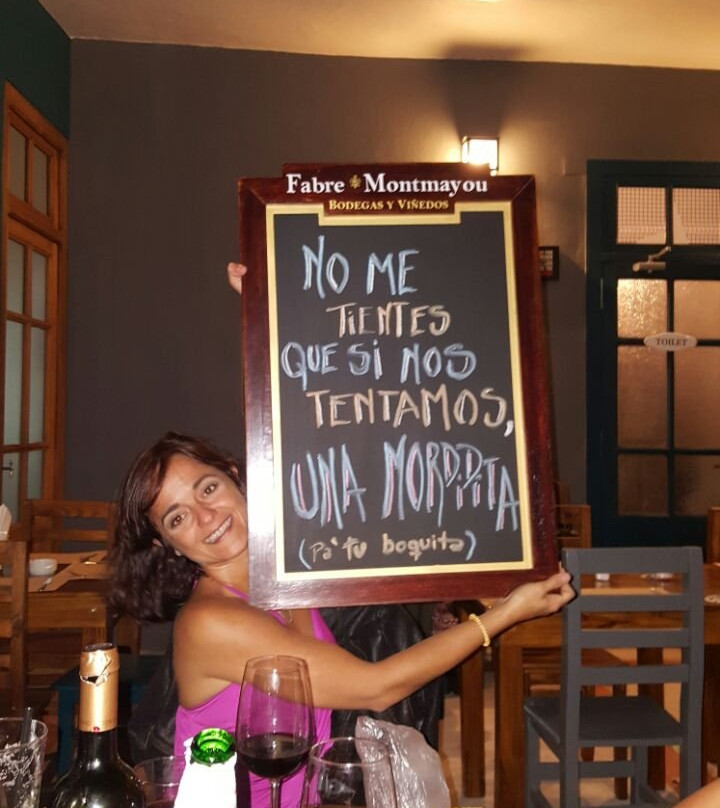 Fabre Montmayou
BODEGAS Y VIÑEDOS
NO ME
TiENTES
QUE Si NOS
TENTAMOS,
UNA MORDiDiTA
(Pa' tu boquita)
TOILET